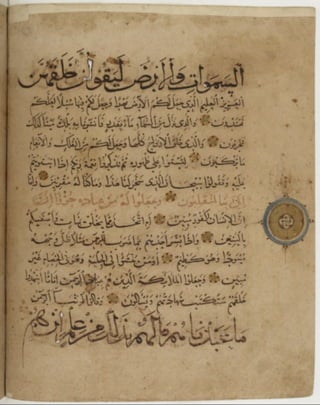 السموات والارض ليقولن خلقهن
العزيز العليم الذي جعل لكم الارض مهدا وجعل لكم فيها سبلا لعلكم
تهتدون والذي نزل من السماء ماء بقدر فانشرنا به بلدة ميتا كذلك
تخرجون والذي خلق الازواج كلها وجعل لكم من الفلك والانعام
ما تركبون لتستووا على ظهوره ثم تذكروا نعمة ربكم اذا استويتم
عليه وتقولوا سبحان الذي سخر لنا هذا وما كنا له مقرنين وانا
الى ربنا لمنقلبون وجعلوا له من عباده جزءا
ان الانسان لكفور مبين ام اتخذ مما يخلق بنات واصفيكم
بالبنين واذا بشر احدهم بما ضرب للرحمن مثلا ظل وجهه
مسودا وهو كظيم اومن ينشؤا في الحلية وهو في الخصام غير
مبين وجعلوا الملائكة الذين هم عباد الرحمن اناثا اشهدوا
خلقهم ستكتب شهادتهم ويسئلون وقالوا لو شاء الرحمن
ما عبدناهم ما لهم بذلك من علم ان هم